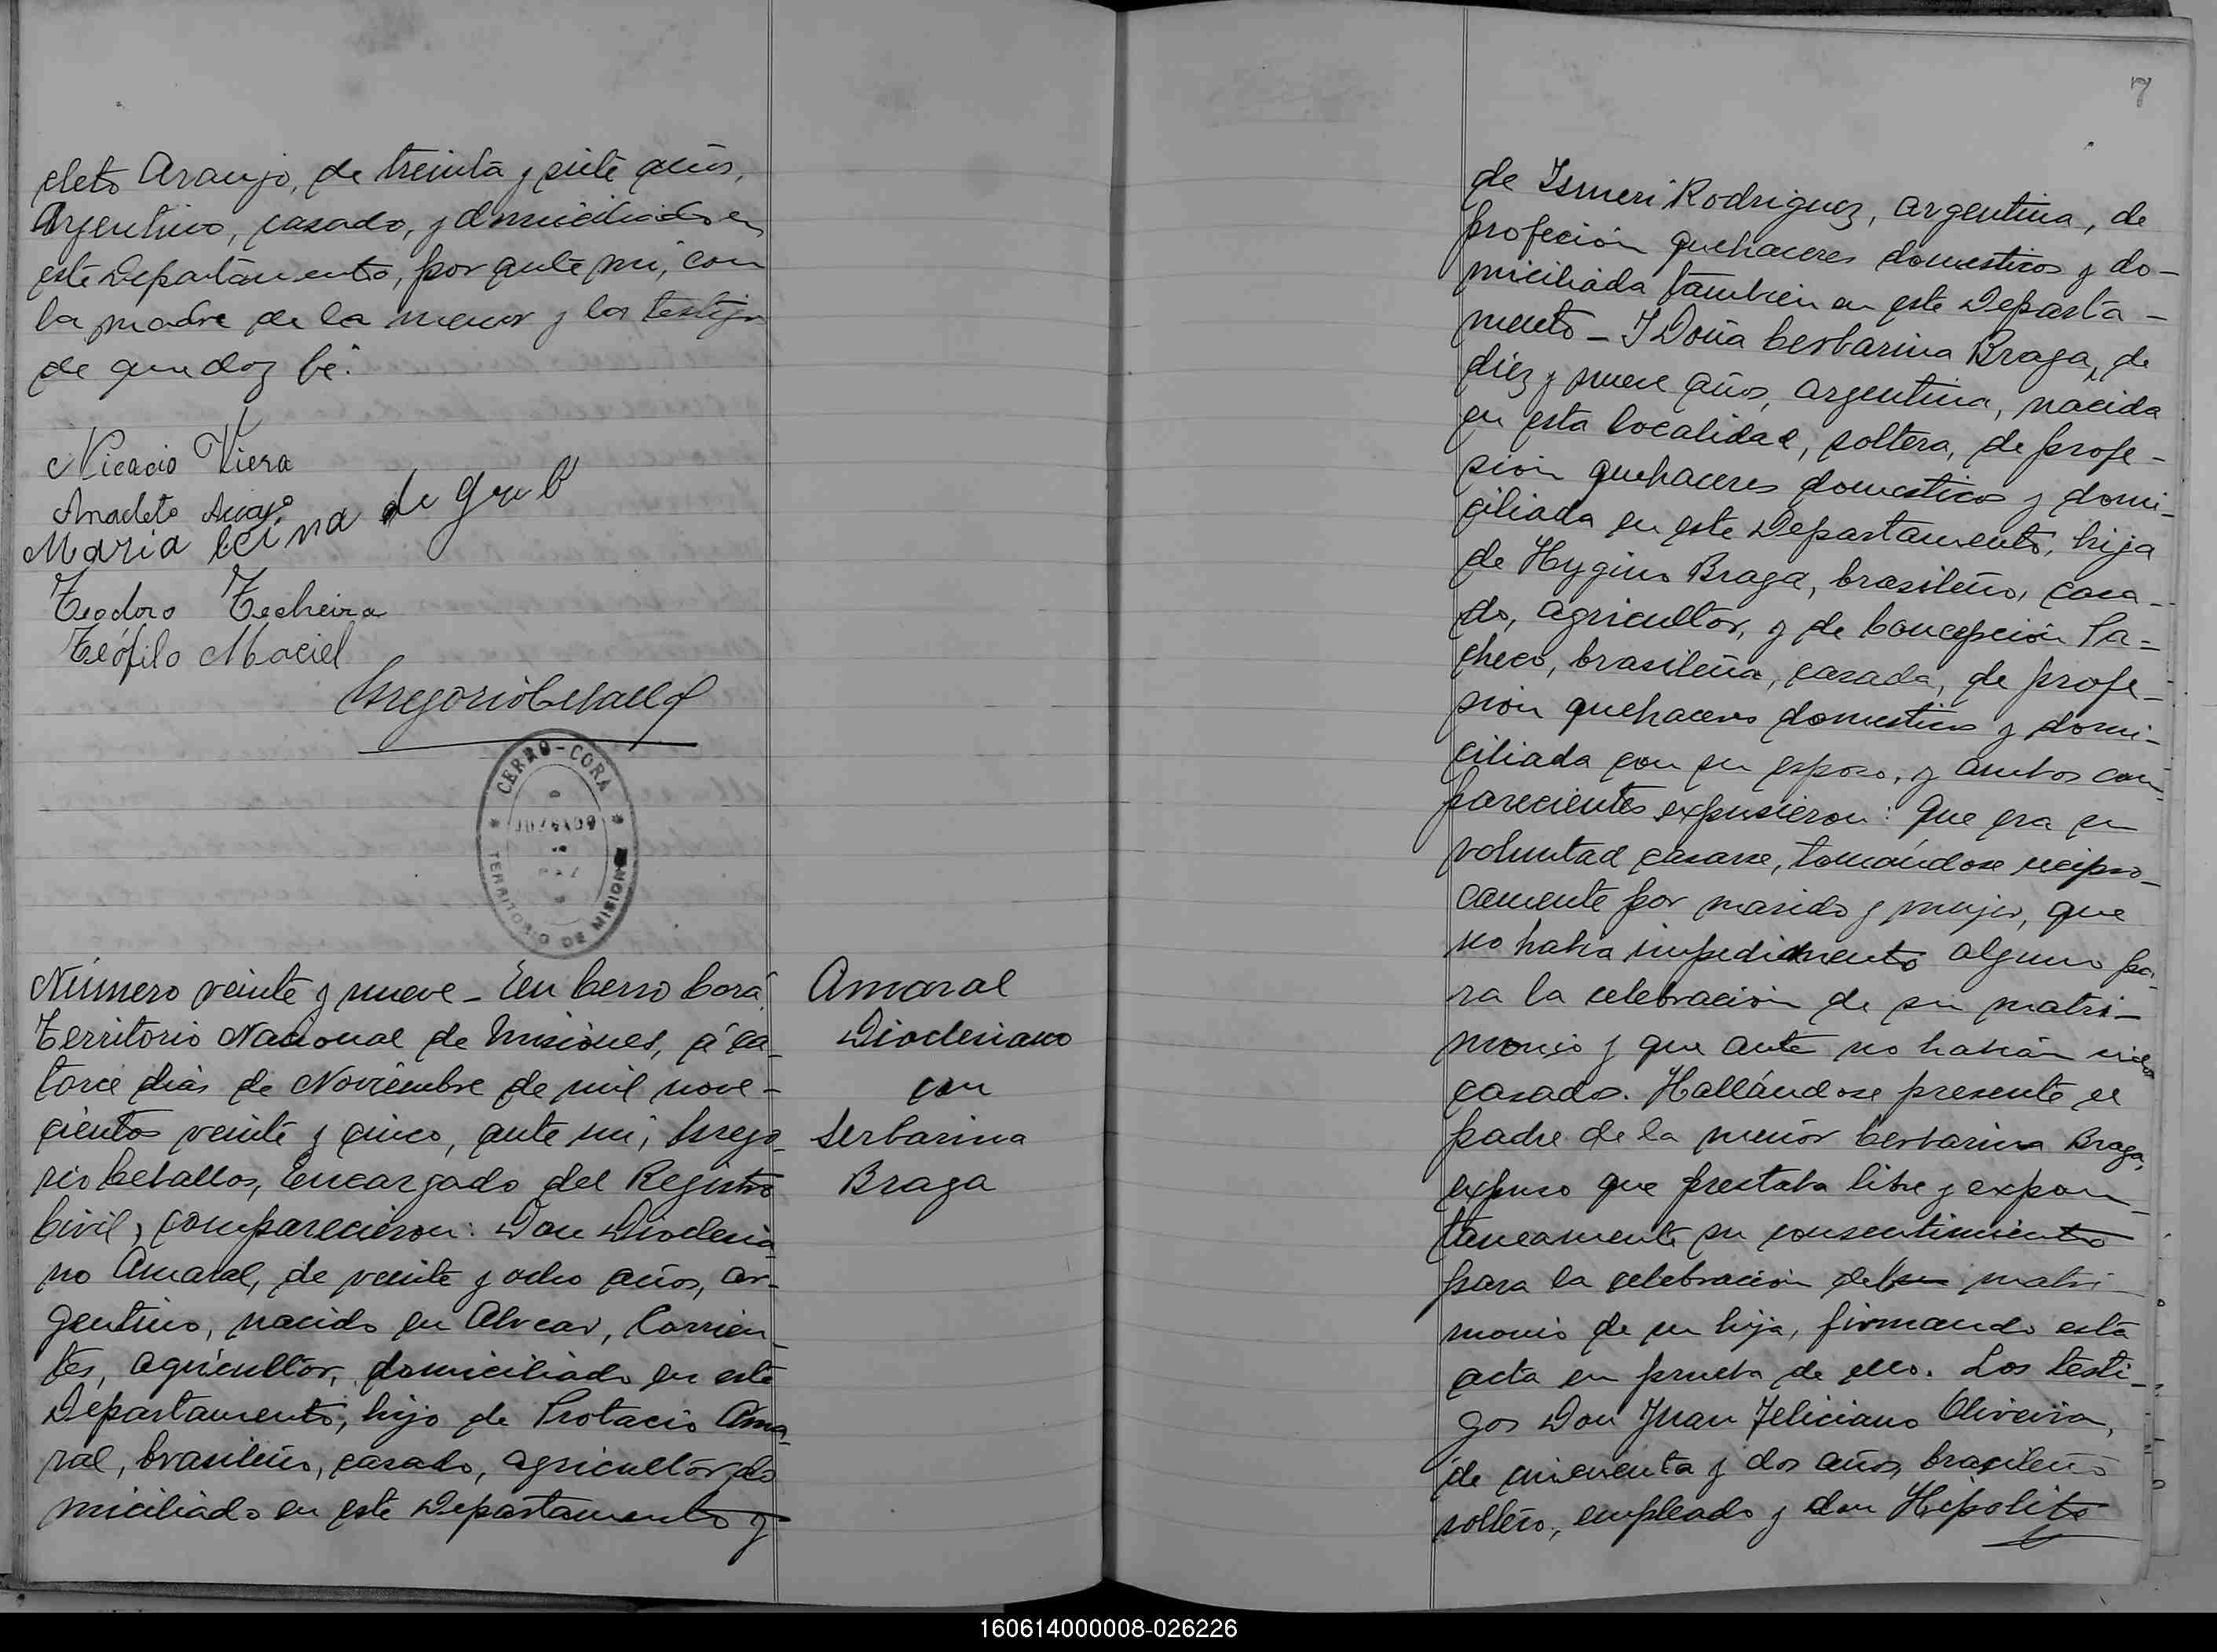 cleto Araujo, de treinta y siete años,
Argentino, casado, y domiciliado en
este Departamento, por ante mi, con
la madre de la menor y los testigos
de que doy fé.
Nicacio Viera
Anacleto Araujo
Maria de
Teodoro Techeira
Teófilo Maciel
Gregorio Ceballos
CERRO-CORA
JUZGADO
DE
PAZ
TERRITORIO DE MISIONES
Número veinte y nueve - En Cerro Corá
Territorio Nacional de Misiones, á ca-
torce dias de Noviembre de mil nove-
cientos veinte y cinco, ante mi, Grego-
rio Ceballos, Encargado del Registro
Civil, comparecieron: Don Dioclesia-
no Amaral, de veinte y ocho años, ar-
gentino, nacido en Alvear, Corrien-
tes, agricultor, domiciliado en este
Departamento, hijo de Protacio Ama-
ral, brasileño, casado, agricultor, do
miciliado en este Departamento y
Amaral
Dioclesiano
con
Serbarina
Braga
7
de Ismeri Rodriguez, argentina, de
profeción quehaceres domesticos y do-
miciliada tambien en este Departa-
mento - Y Doña Cerbarina Braga, de
diez y nueve años, argentina, nacida
en esta localidad, soltera, de profe-
sion quehaceres domesticos y domi-
ciliada en este Departamento, hija
de Hygino Braga, brasileño, casa-
do, agricultor, y de Concepción Pa-
checo, brasileña, casada, de profe-
sion quehaceres domesticos y domi-
ciliada con su esposo, y ambos com-
parecientes expusieron: Que era su
voluntad casarse, tomándose recipro-
camente por marido y mujer, que
no habia impedimento alguno pa-
ra la celebración de su matri-
monio y que ante no habian sido
casados. Hallándose presente el
padre de la menor Cerbarina Braga,
expuso que prestaba libre y expon-
taneamente su consentimiento
para la celebración del matri-
monio de su hija, firmando esta
acta en prueba de ello. Los testi-
gos Don Juan Feliciano Oliveira,
de cincuenta y dos años, brasileño
soltero, empleado y don Hipolito
160614000008-026226